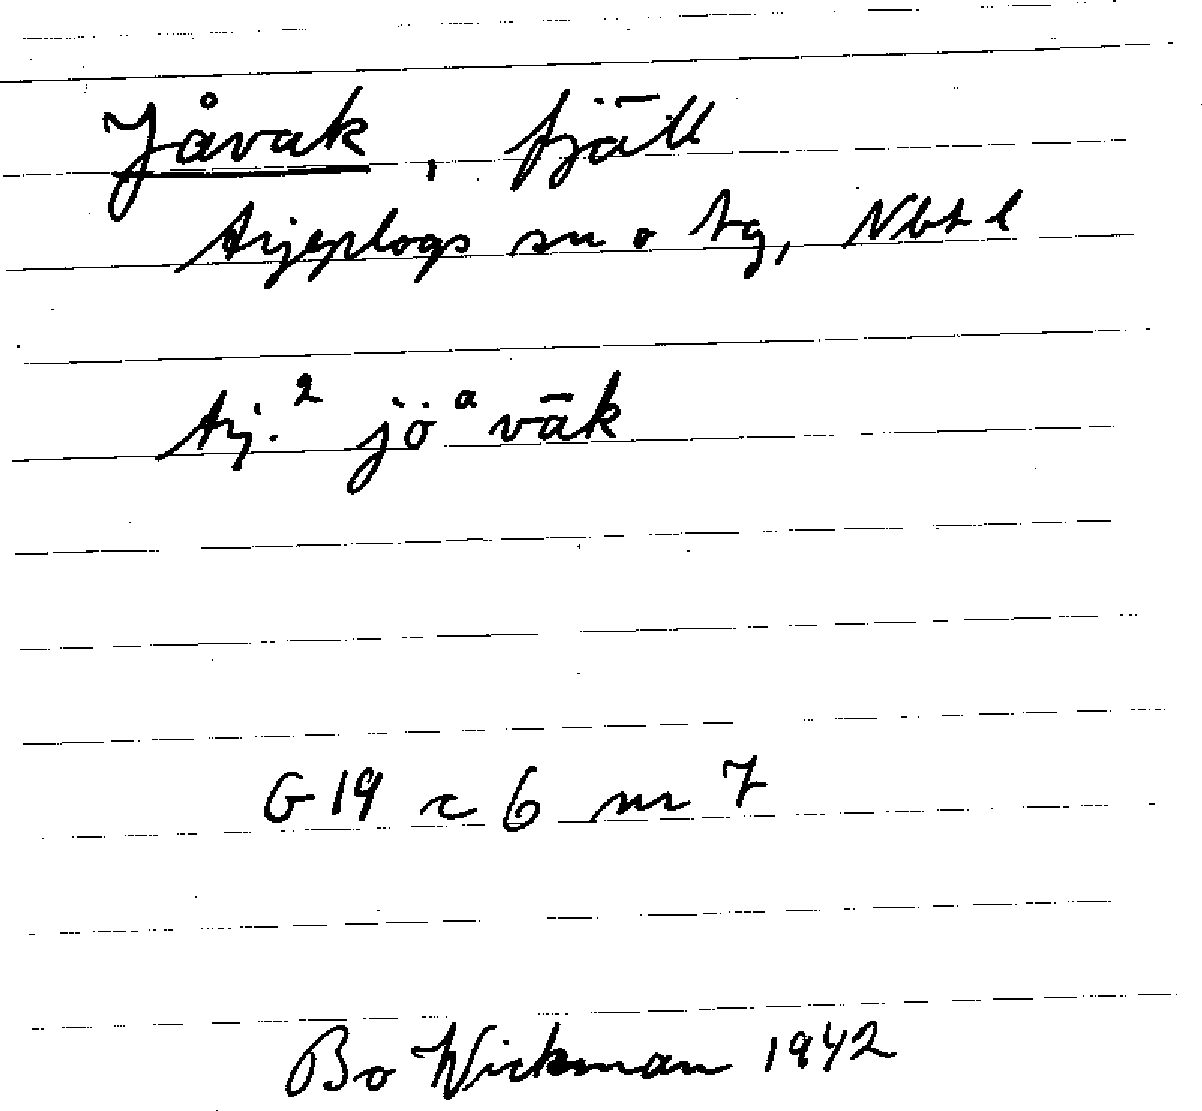 Jåvak, fjäll
Arjeplogs sn o tg, Nbt l
Arj.² jöᵃvāk
G 19 c 6 nr 7
Bo Wickman 1942